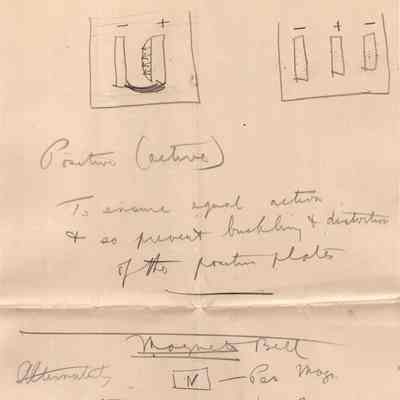 − +
− + −
Positive (active)
To ensure equal action
& so prevent buckling & distortion
of the positive plates
Magneto Bell
Alternately
N — Per Mag.